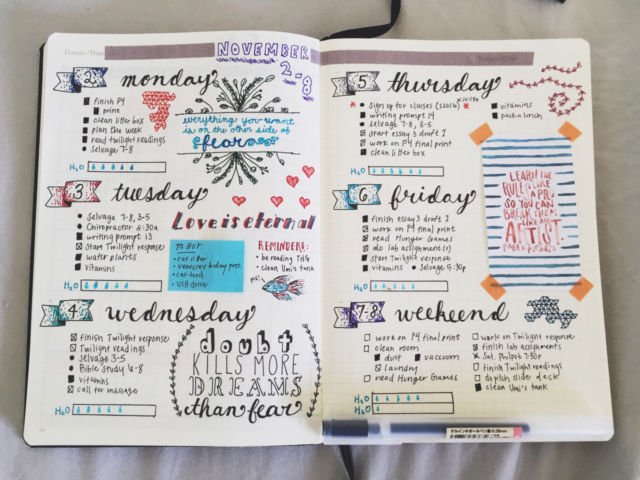 Datum / Date
NOVEMBER
2-8
2
monday
finish P4
print
clean litter box
plan the week
read twilight readings
selvage 7-8
H2O
everything you want
is on the other side of
fear
3
tuesday
Selvage 7-8, 3-5
Chiropractor 5:30a
writing prompt 13
Start Twilight response
water plants
vitamins
H2O
Love is eternal
TO BUY:
cat litter
vanessa's bday pres.
cat food
USB drive
REMINDERS:
be reading THG
clean Umi's tank
4
wednesday
finish Twilight response
Twilight readings
Selvage 3-5
Bible Study 6-8
vitamins
call for massage
H2O
doubt
KILLS MORE
DREAMS
than fear
5
thursday
Sign up for classes
writing prompt 14
Selvage 7-8, 3-5
start essay 3 draft 1
work on P4 final print
clean litter box
vitamins
pack a lunch
H2O
LEARN THE
RULES LIKE
A PRO,
SO YOU CAN
BREAK THEM
LIKE AN
ARTIST.
PABLO PICASSO
6
friday
finish essay 3 draft 1
work on P4 final print
read Hunger Games
do lab assignment(s)
start Twilight response
vitamins
Selvage 5:30p
H2O
7-8
weekend
work on P4 final print
clean room
dust
vacuum
laundry
read Hunger Games
work on Twilight response
finish lab assignments
Sat. Philpot 7:30p
finish Twilight readings
do pitch slide deck
clean Umi's tank
H2O
ゲルインキボールペン
0.38mm